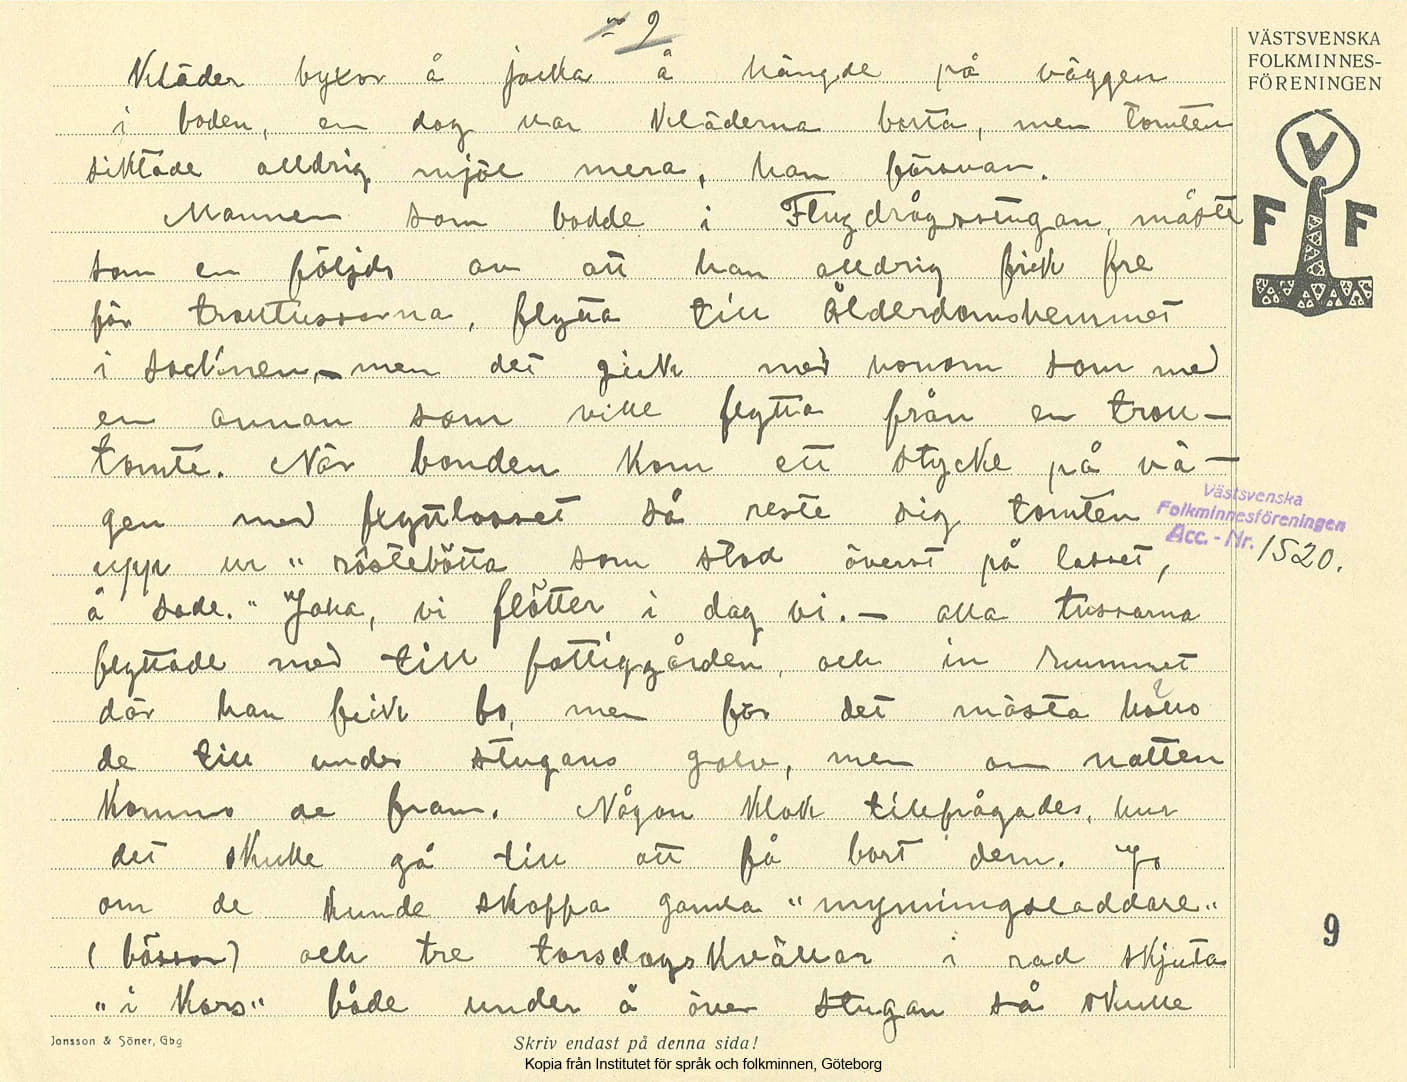 9
Kläder byxor å jacka å hängde på väggen
i boden, en dag var kläderna borta, men tomten
siktade alldrig mjöl mera, han försvan.
Mannen som bodde i Flugdrågsstugan, måste
som en följd av att han alldrig fick fre
för trolltussarna, flytta till Ålderdomshemmet
i socknen, – men det gick med honom som med
en annan som ville flytta från en troll-
tomte. När bonden kom ett stycke på vä-
gen med flyttlasset så reste sig tomten
upp ur "röstebötta som stod överst på lasset,
å sade. "Jaha, vi flötter i dag vi. – alla tussarna
flyttade med till fattiggården, och in rummet
där han fick bo, men för det mästa höllo
de till under stugans golv, men om natten
kommo de fram. Någon klok tillfrågades, hur
det skulle gå till att få bort dem. Jo
om de kunde skaffa gamla "mynningsladdare"
(bössor) och tre torsdagskvällar i rad skjuta
"i kors" både under å över stugan så skulle
VÄSTSVENSKA
FOLKMINNES-
FÖRENINGEN
V
F F
Västsvenska
Folkminnesföreningen
Acc.-Nr. 1520.
9
Jonsson & Söner, Gbg
Skriv endast på denna sida!
Kopia från Institutet för språk och folkminnen, Göteborg